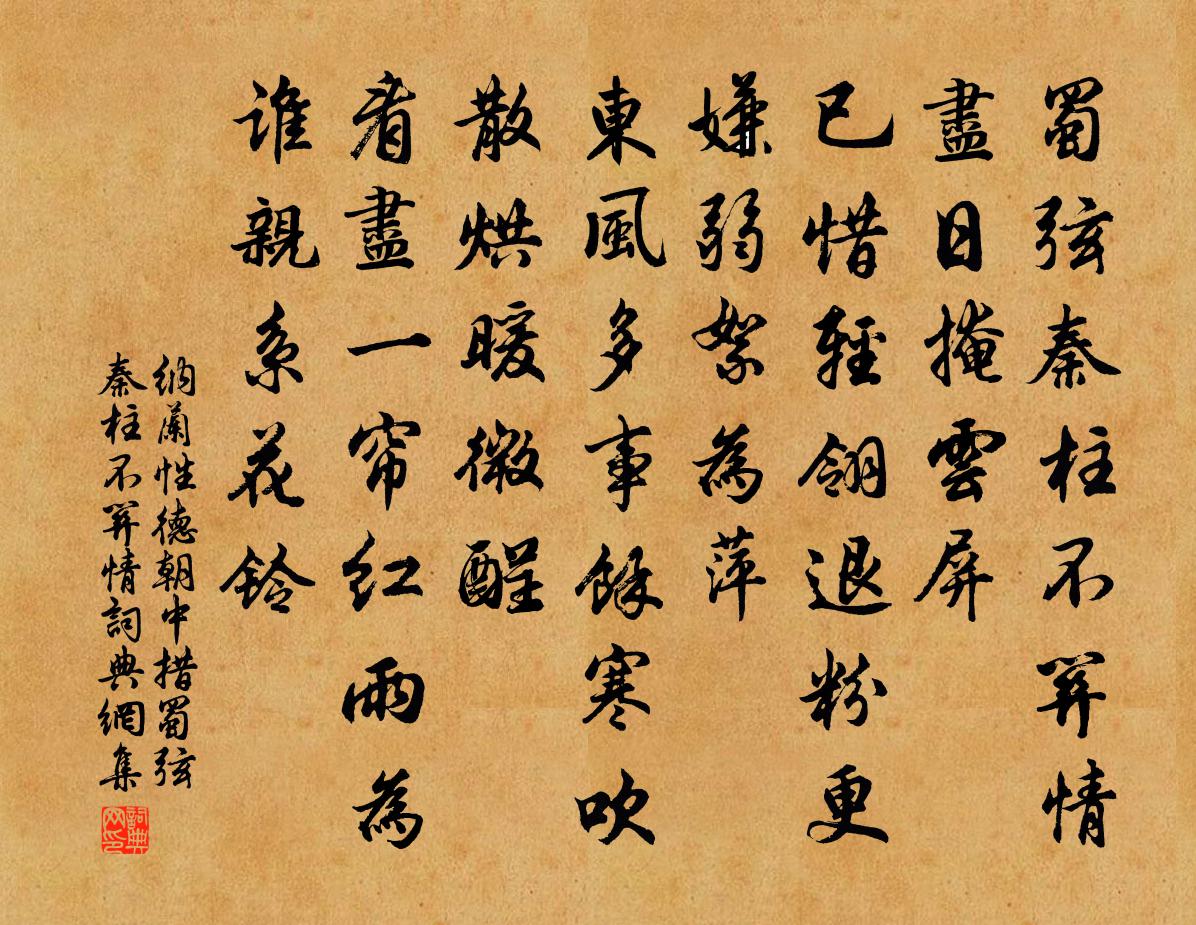 蜀弦秦柱不關情
盡日掩雲屏
已惜輕翎退粉更
嫌弱絮為萍
東風多事餘寒吹
散烘暖微醒
看盡一帘紅雨為
誰親系花鈴
納蘭性德朝中措蜀弦
秦柱不關情詞典網集
詞典
网印